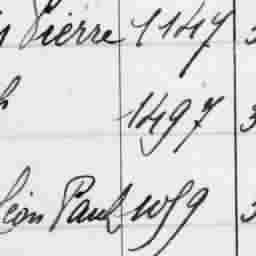 Pierre 1147 3
1497 3
Léon Paul 1059 3